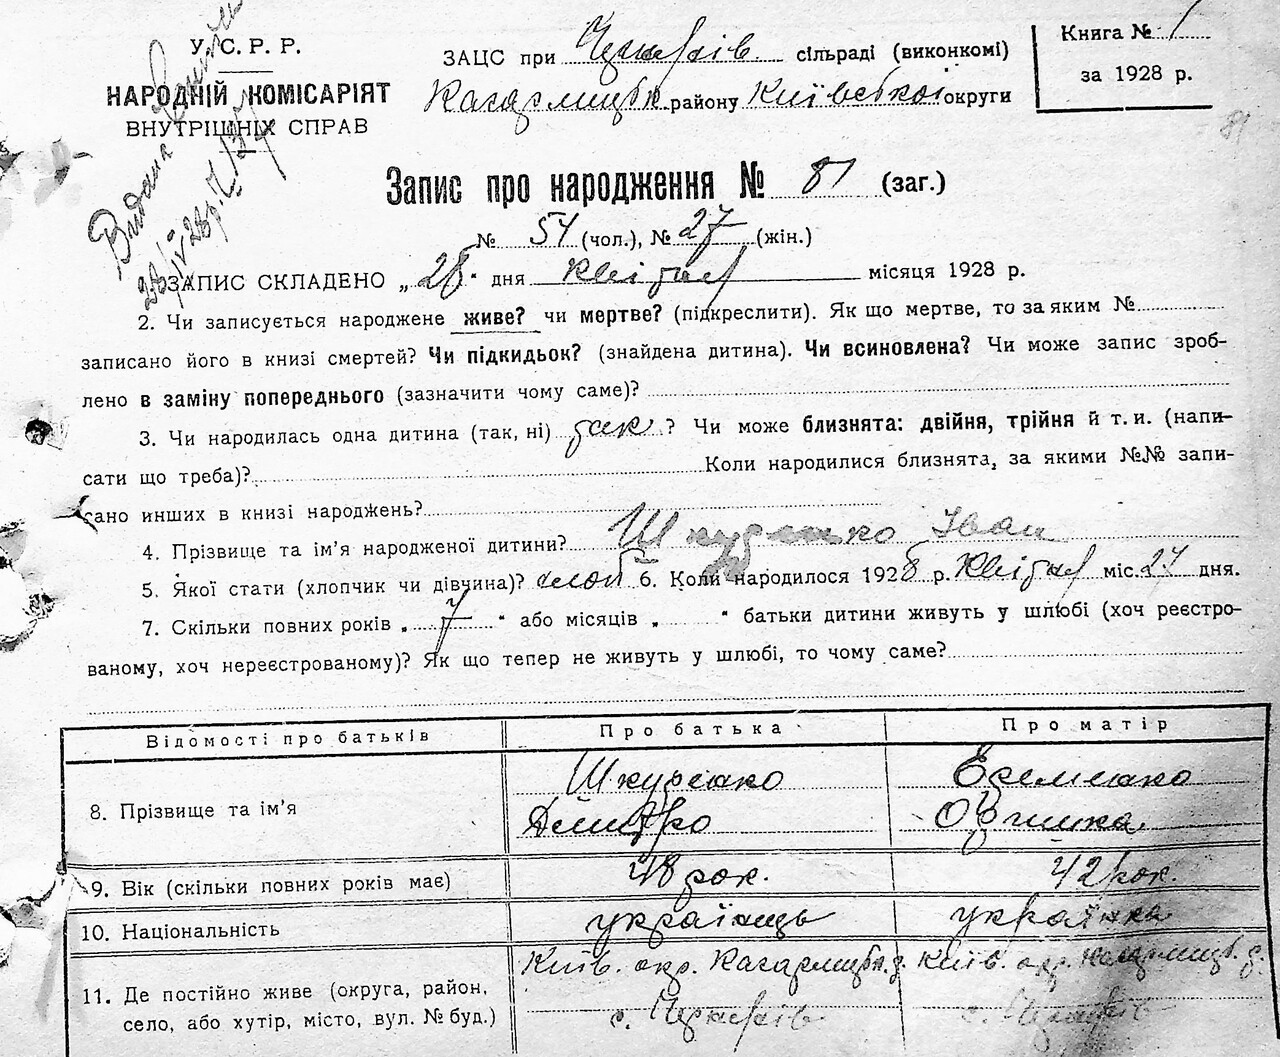 У. С. Р. Р.
НАРОДНІЙ КОМІСАРІЯТ
ВНУТРІШНІХ СПРАВ
ЗАЦС при сільраді (виконкомі)
Кагарлицьк. району Київської округи
Книга № 1
за 1928 р.
81
Видана
28/IV 28р.
Запис про народження № 81 (заг.)
№ 54 (чол.), № 27 (жін.)
ЗАПИС СКЛАДЕНО „28“ дня квітня місяця 1928 р.
2. Чи записується народжене живе? чи мертве? (підкреслити). Як що мертве, то за яким №
записано його в книзі смертей? Чи підкидьок? (знайдена дитина). Чи всиновлена? Чи може запис зроб-
лено в заміну попереднього (зазначити чому саме)?
3. Чи народилась одна дитина (так, ні) так ? Чи може близнята: двійня, трійня й т. и. (напи-
сати що треба)? Коли народилися близнята, за якими №№ запи-
сано инших в книзі народжень?
4. Прізвище та ім'я народженої дитини? Іван
5. Якої стати (хлопчик чи дівчина)? 6. Коли народилося 1928 р. квітня міс. 27 дня.
7. Скільки повних років „ 7 “ або місяців „ “ батьки дитини живуть у шлюбі (хоч реєстро-
ваному, хоч нереєстрованому)? Як що тепер не живуть у шлюбі, то чому саме?
Відомості про батьків Про батька Про матір
8. Прізвище та ім'я
Дмитро
9. Вік (скільки повних років має) 48 рок. 42 рок.
10. Національність українць українка
11. Де постійно живе (округа, район,
село, або хутір, місто, вул. № буд.)
Київ. окр. Кагарлицьк. р. Київ. окр. Кагарлицьк. р.
с. с.